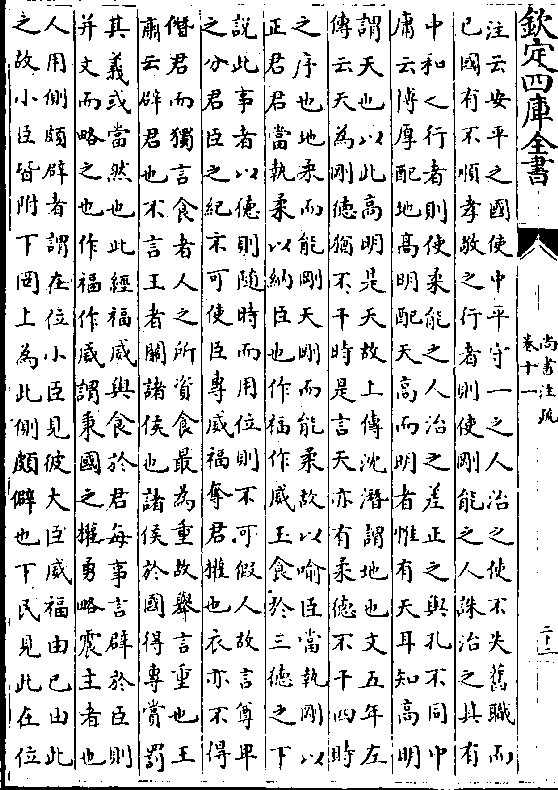 欽定四庫全書
尚書注疏
卷十一
注云安平之國使中平守一之人治之使不失舊職而
已國有不順孝敬之行者則使剛能之人誅治之其有
中和之行者則使柔能之人治之差正之與孔不同中
庸云博厚配地髙明配天髙而明者惟有天耳知髙明
謂天也以此髙明是天故上傳沈潜謂地也文五年左
傳云天為剛徳猶不干時是言天亦有柔徳不干四時
之序也地柔而能剛天剛而能柔故以喻臣當執剛以
正君君當執柔以納臣也作福作威玉食於三徳之下
説此事者以徳則隨時而用位則不可假人故言尊卑
之分君臣之紀不可使臣專威福奪君權也衣亦不得
僭君而獨言食者人之所資食最為重故舉言重也王
肅云辟君也不言王者關諸侯也諸侯於國得專賞罰
其義或當然也此經福威與食於君每事言辟於臣則
并文而略之也作福作威謂秉國之權勇略震主者也
人用側頗辟者謂在位小臣見彼大臣威福由已由此
之故小臣皆附下罔上為此側頗僻也下民見此在位